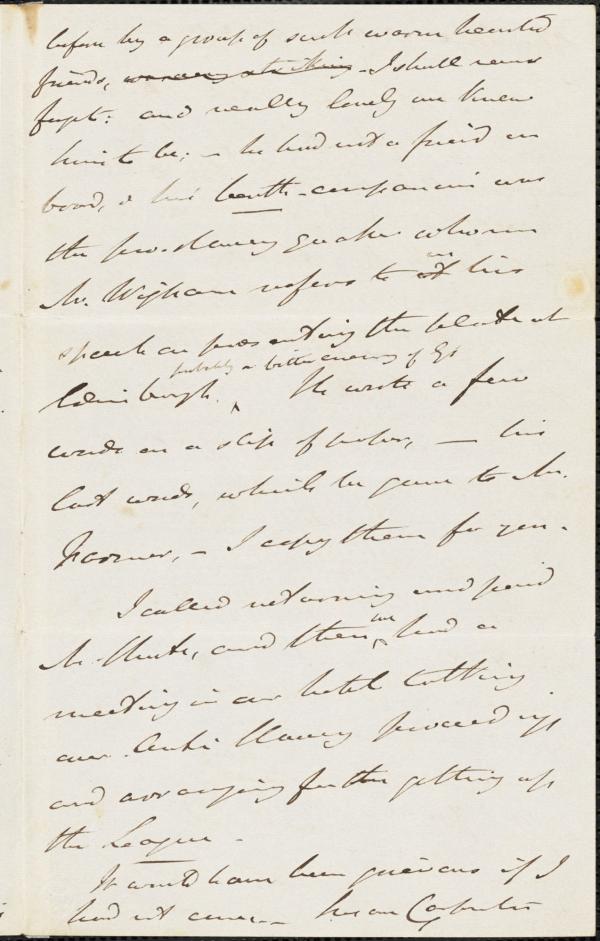 before by a group of such warm hearted
friends, I shall never
forget: and really lonely we knew
him to be; — he had not a friend on
board, & his berth-companion was
the pro-slavery Quaker whom
Mr. Wigham refers to in his
speech on presenting the plate at
probably a bitter enemy of
Edinburgh. He wrote a few
words on a slip of paper, — his
last words, which he gave to Mr.
Farmer, — I copy them for you.
I called returning and paid
Mr. and then we had a
meeting in our hotel talking
over Anti Slavery proceedings
and arranging for the getting up
the League —
It would have been grievous if I
had not come. —